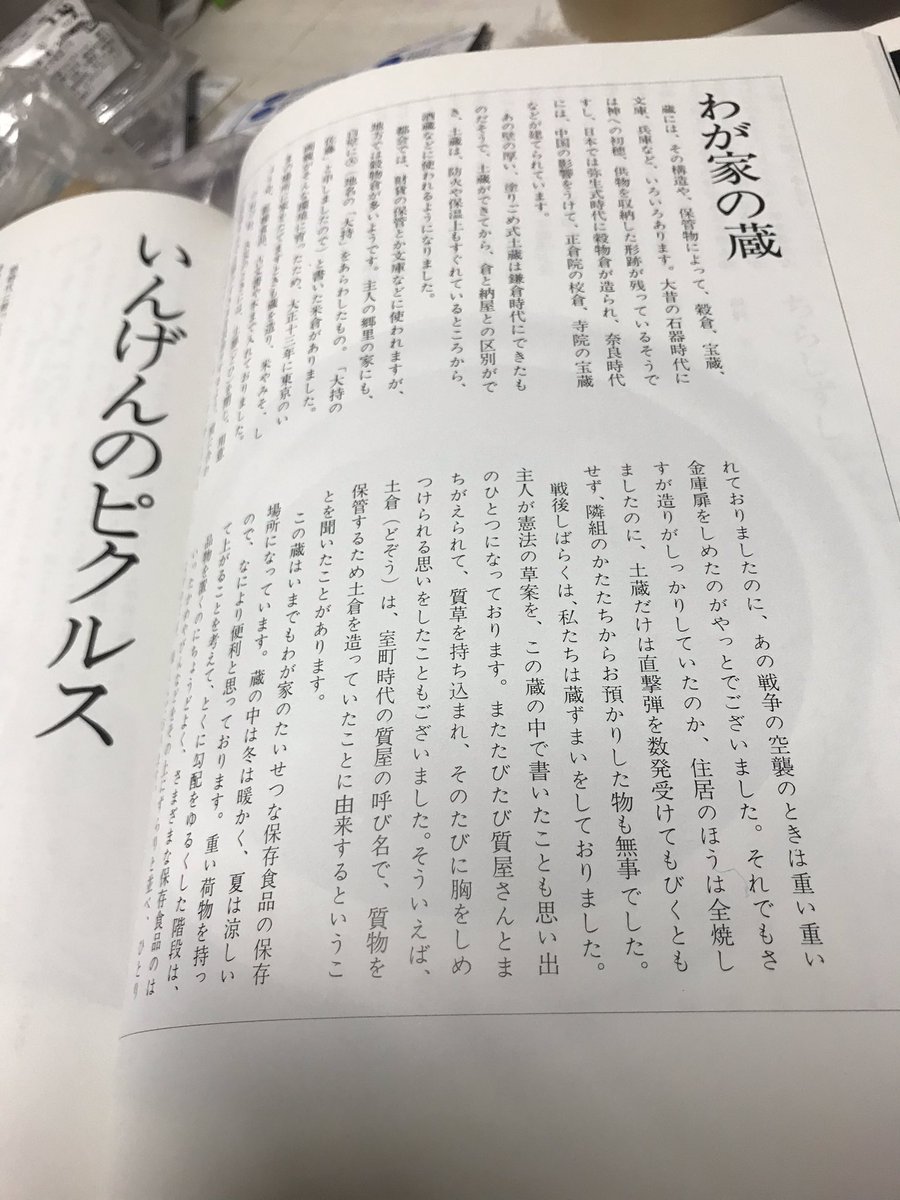 わが家の蔵
蔵には、その構造や、保管物によって、穀倉、宝蔵、
文庫、兵庫など、いろいろあります。大昔の石器時代に
は神への初穂、供物を収納した形跡が残っているそうで
すし、日本では弥生式時代に穀物倉が造られ、奈良時代
には、中国の影響をうけて、正倉院の校倉、寺院の宝蔵
などが建てられています。
あの壁の厚い、塗りごめ式土蔵は鎌倉時代にできたも
のだそうで、土蔵ができてから、倉と納屋との区別がで
き、土蔵は、防火や保温上もすぐれているところから、
酒蔵などに使われるようになりました。
都会では、財貨の保管とか文庫などに使われますが、
地方では穀物倉が多いようです。主人の郷里の家にも、
白壁に(地名の「大持」をあらわしたもの。「大持の
佐藤」と申しましたので)と書いた米倉がありました。
ため、大正十三年に東京のい
まの場所に家をたてますときも蔵を造り、米やみそ、し
れておりましたのに、あの戦争の空襲のときは重い重い
金庫扉をしめたのがやっとでございました。それでもさ
すが造りがしっかりしていたのか、住居のほうは全焼し
ましたのに、土蔵だけは直撃弾を数発受けてもびくとも
せず、隣組のかたたちからお預かりした物も無事でした。
戦後しばらくは、私たちは蔵ずまいをしておりました。
主人が憲法の草案を、この蔵の中で書いたことも思い出
のひとつになっております。またたびたび質屋さんとま
ちがえられて、質草を持ち込まれ、そのたびに胸をしめ
つけられる思いをしたこともございました。そういえば、
土倉（どぞう）は、室町時代の質屋の呼び名で、質物を
保管するため土倉を造っていたことに由来するというこ
とを聞いたことがあります。
この蔵はいまでもわが家のたいせつな保存食品の保存
場所になっています。蔵の中は冬は暖かく、夏は涼しい
ので、なにより便利と思っております。重い荷物を持っ
て上がることを考えて、とくに勾配をゆるくした階段は、
品物を置くのにちょうどよく、さまざまな保存食品のは
いんげんのピクルス